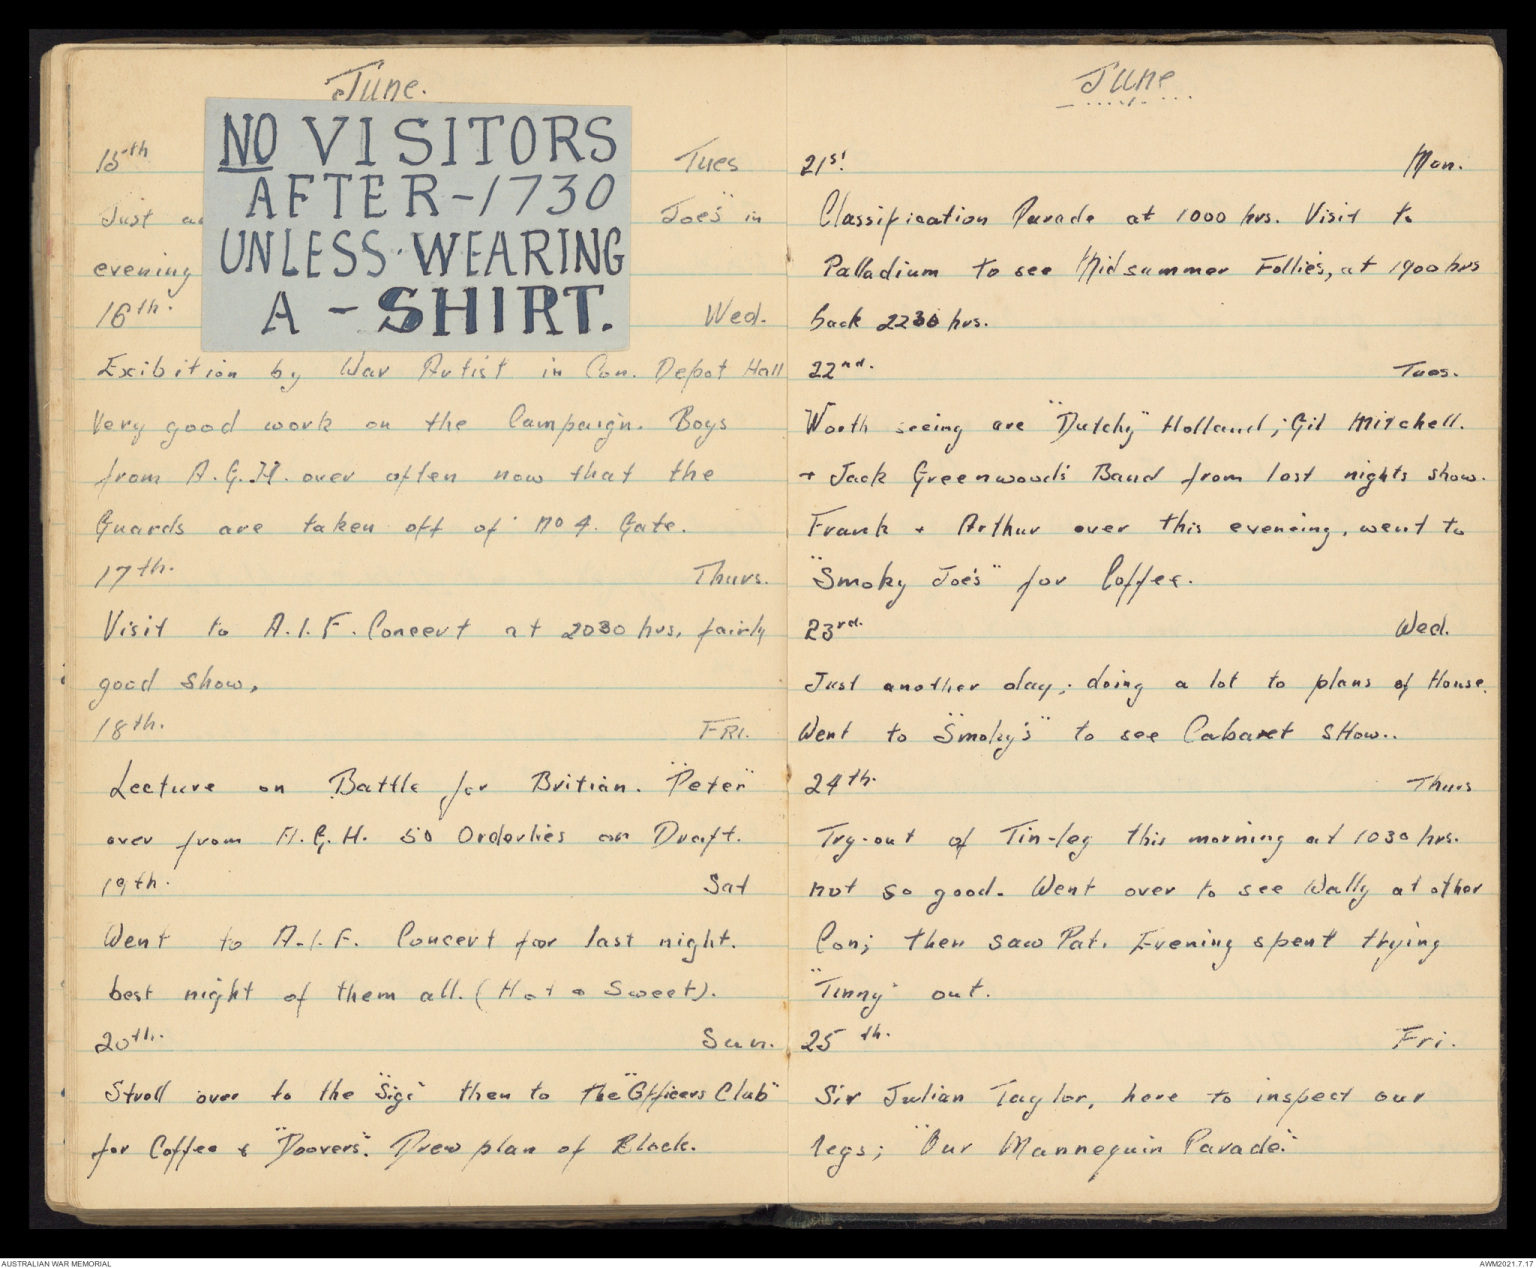 June.
NO VISITORS
AFTER-1730
UNLESS WEARING
A - SHIRT.
15th Tues
Just Joe's" in
evening
16th. Wed.
Exibition by War Artist in Con. Depot Hall
Very good work on the Campaign. Boys
from A.G.H. over often now that the
Guards are taken off of No 4. Gate.
17th. Thurs.
Visit to A.I.F. Concert at 2030 hrs, fairly
good show,
18th. FRI.
Lecture on Battle for Britian. "Peter"
over from A.G.H. 50 Orderlies on Draft.
19th. Sat
Went to A.I.F. Concert for last night.
best night of them all. (Hot & Sweet).
20th. Sun.
Stroll over to the "Sigs" then to the "Officers Club"
for Coffee & "Doovers". Drew plan of Block.
June
21st Mon.
Classification Parade at 1000 hrs. Visit to
Palladium to see Midsummer Follies, at 1900 hrs
back 2230 hrs.
22nd. Tues.
Worth seeing are "Dutchy" Holland; Gil Mitchell.
+ Jack Greenwood's Band from last nights show.
Frank + Arthur over this evening, went to
"Smoky Joe's" for Coffee.
23rd. Wed.
Just another day; doing a lot to plans of House.
Went to "Smoky's" to see Cabaret SHow..
24th. Thurs
Try-out of Tin-leg this morning at 1030 hrs.
not so good. Went over to see Wally at other
Con; then saw Pat. Evening spent trying
"Tinny" out.
25th. Fri.
Sir Julian Taylor, here to inspect our
legs; "Our Mannequin Parade."
AUSTRALIAN WAR MEMORIAL
AWM2021.7.17